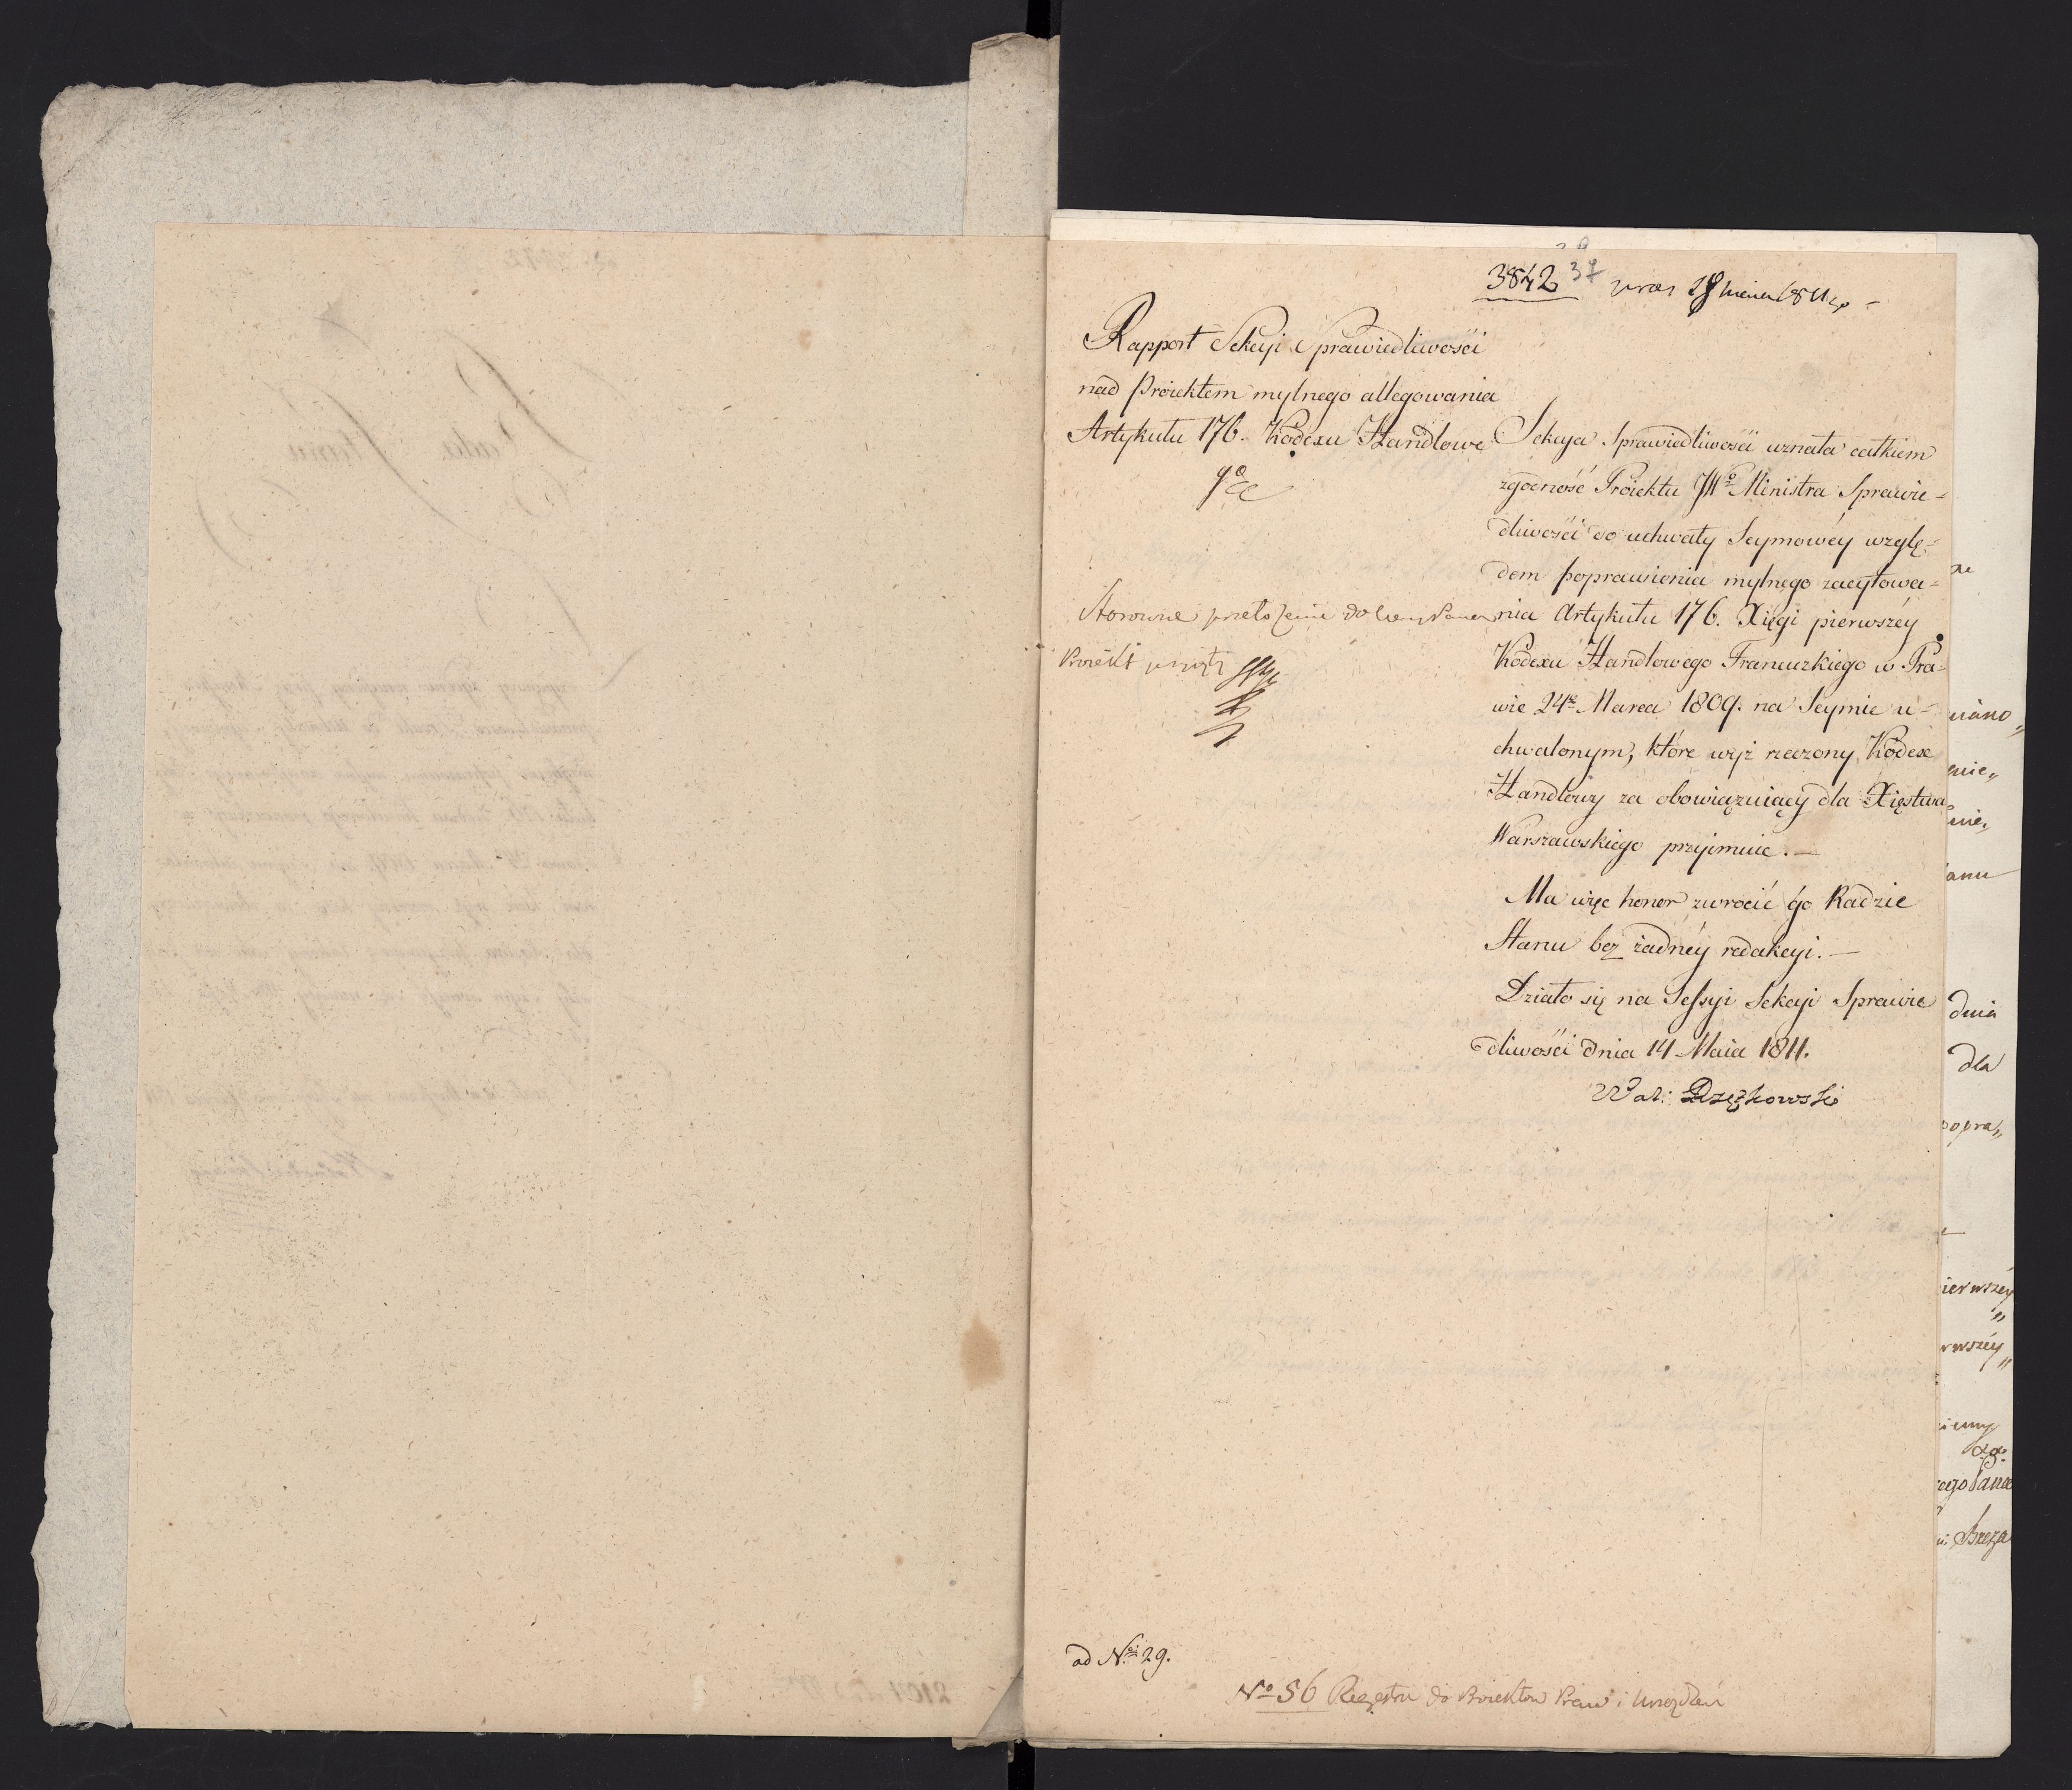 3842 37 praes 18 1811
Rapport Sekcyi Sprawiedliwości
nad Proiektem mylnego allegowania
Artykułu 176. Kodexu Handlowe
go
Sekcya Sprawiedliwości uznała całkiem
zgodność Proiektu JWo Ministra Sprawie-
dliwości do uchwały Seymowéy wzglę-
dem poprawienia mylnego zacytowa-
nia Artykułu 176. Xięgi pierwszéy
Kodexu Handlowego Francuzkiego w Pra-
wie 24go Marca 1809. na Seymie u-
chwalonym, które wyż rzeczony Kodex
Handlowy za obowiązuiący dla Xięstwa
Warszawskiego przyimuie. —
Ma więc honor zwrocić go Radzie
Stanu bez żadnéy redakcyi. —
Działo się na Sessyi Sekcyi Sprawie
dliwości dnia 14 Maia 1811.
Stosowne do
Proiekt
ad Nr 29.
No 56 Regestru do Proiektow Praw i Urządzeń
dnia
dla
popra„
ierwszéy
rwszéy„
Breza